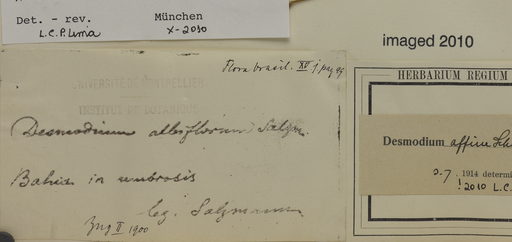 Det. - rev. München
L.C.P. Lima x-2010
imaged 2010
Flora brasil. XV, 1 pag 95
UNIVERSITÉ DE MONTPELLIER
INSTITUT DE BOTANIQUE
Desmodium albiflorum Salzm.
Bahia in umbrosis
leg. Salzmann
II 1900
HERBARIUM REGIUM
Desmodium affine Schl
2.7. 1914 determi
! 2010 L.C.